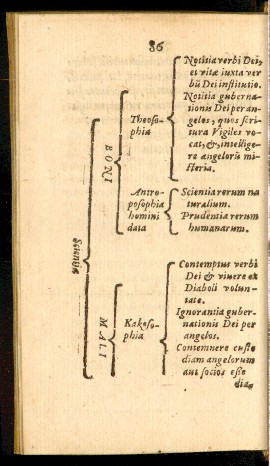 86
Scientia
BONI
Theoso-
phia
Notitia verbi Dei,
et vitæ iuxta ver
bū Dei institutio.
Notitia guberna-
tionis Dei per an-
gelos, quos scri
tura Vigiles vo-
cat, &, intellige-
re angelorū mi-
steria.
Antro-
posophia
homini
data
Scientia rerum na
turalium.
Prudentia rerum
humanarum.
MALI
Kakoso-
phia
Contemptus verbi
Dei & vivere ex
Diaboli volun-
tate.
Ignorantia guber-
nationis Dei per
angelos.
Contemnere custo
diam angelorum
aut socios esse
dia-